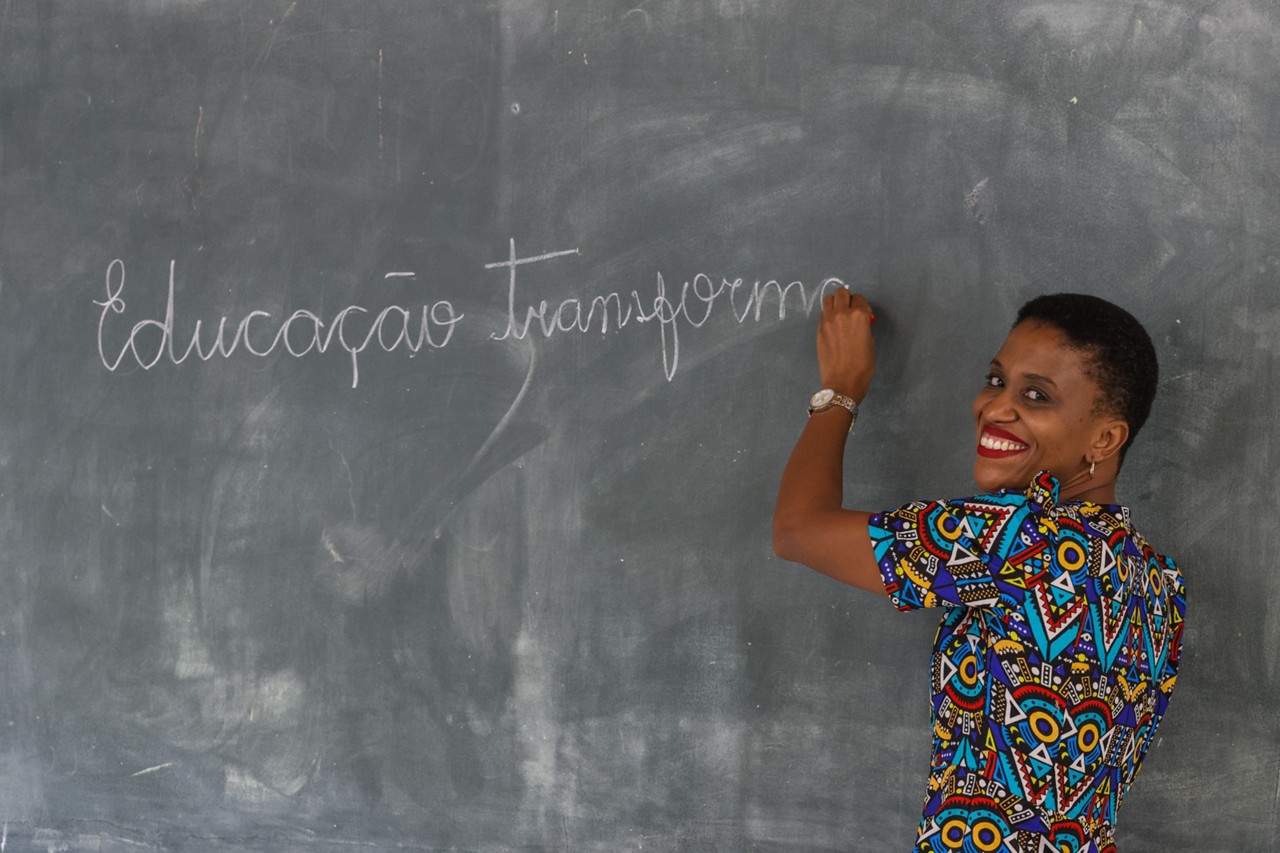 Educação transforma